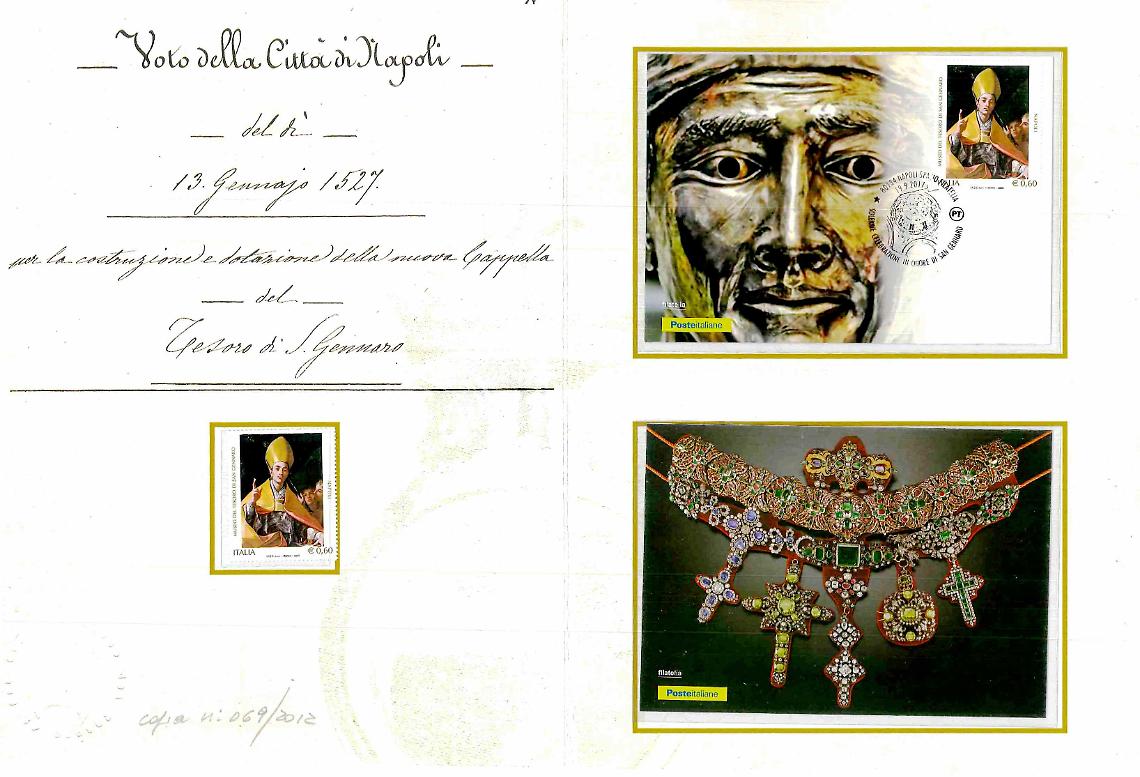 Voto della Città di Napoli
del dì
13. Gennajo 1527.
per la costruzione e dotazione della nuova Cappella
del
Tesoro di S. Gennaro
MUSEO DEL TESORO DI SAN GENNARO
NAPOLI
ITALIA
€ 0,60
copia n: 069/2012
MUSEO DEL TESORO DI SAN GENNARO
NAPOLI
LIA
€ 0,60
80134 NAPOLI
FILATELIA
19.9.2011
SOLENNE CELEBRAZIONE IN ONORE DI SAN GENNARO
PT
filatelia
Posteitaliane
filatelia
Posteitaliane